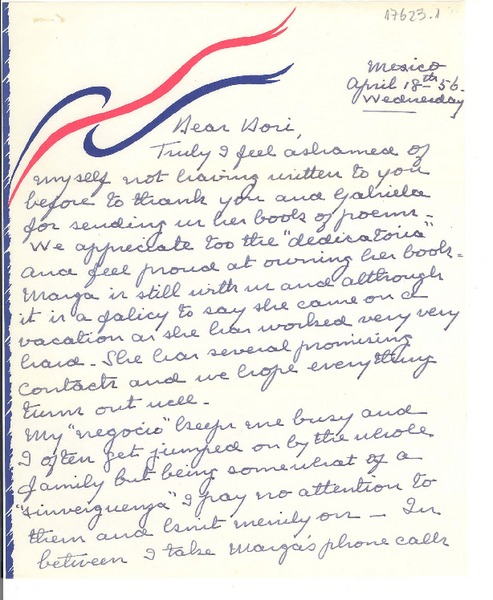 17623.1
Mexico
April 18-th 56-
Wednesday
Dear Dori,
Truly I feel ashamed of
myself not having written to you
before to thank you and Gabriela
for sending us her books of poems -
We appreciate too the "dedicatoria"
and feel proud at owning her books -
Marga is still with us and although
it is a falicy to say she came on a
vacation as she has worked very very
hard - She has several promising
contacts and we hope everything
turns out well -
My "negocio" keeps me busy and
I often get jumped on by the whole
family but being somewhat of a
"sinverguenza" I pay no attention to
them and knit merrily on - In
between I take Marga's phone calls